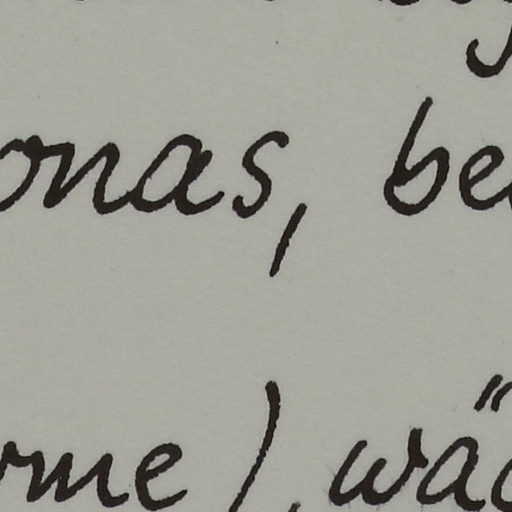 onas, be
rme), wä